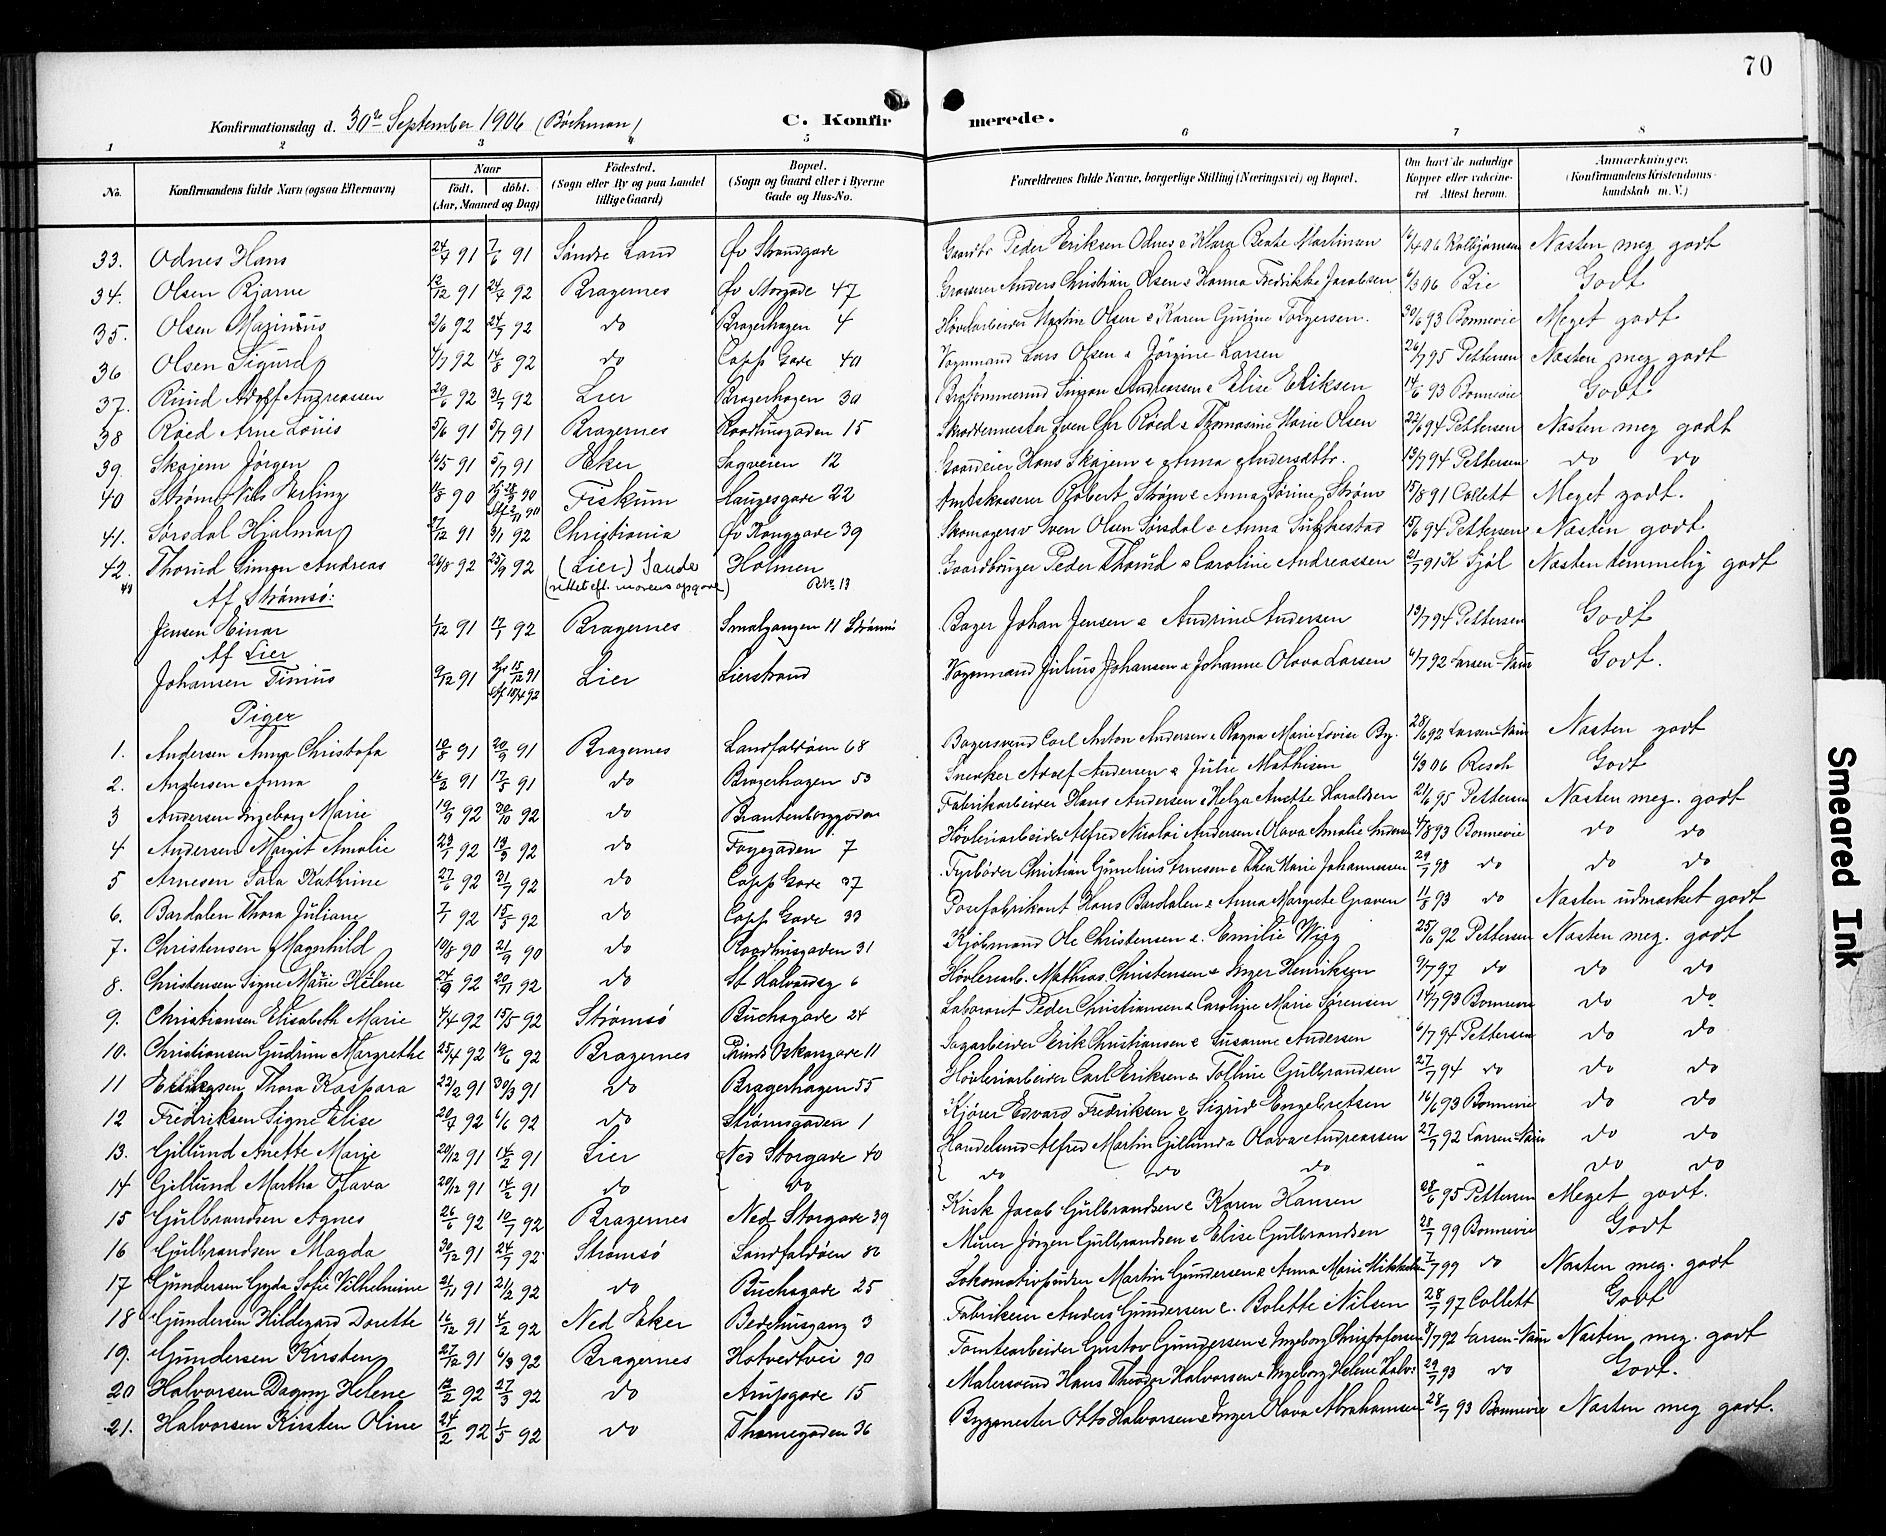 70
Konfirmationsdag d. 30te September 1906 (Böckman) C. Konfirmerede.
1 2 3 4 5 6 7 8
No. Konfirmandens fulde Navn (ogsaa Efternavn) Naar födt. döbt. (Aar, Maaned og Dag) Födested. (Sogn eller By og paa Landet tillige Gaard) Bopæl. (Sogn og Gaard eller i Byerne Gade og Hus-No. Forældrenes fulde Navne, borgerlige Stilling (Næringsvei) og Bopæl. Om havt de naturlige Kopper eller vakcineret Attest herom. Anmærkninger. (Konfirmandens Kristendomskundskab m. V.)
33. Odnes Hans 24/4 91 7/6 91 Söndre Land Öv Strandgade Gaardbr Peder Eriksen Odnes & Klara Beate Martinsen Kolbjörnsen Næsten meg godt
34. Olsen Bjarne 12/12 91 24/4 92 Bragernes Öv Storgade 47 Grosserer Anders Christian Olsen & Hanna Fredrikke Jacobsen 6/3 06 Bie Godt
35. Olsen Maginius 2/6 92 24/7 92 do Bragerhagen 4 Hövlarbeider Martin Olsen & Karen Gurine Torgersen. 20/6 93 Bonnevie Meget godt
36 Olsen Sigurd 4/7 92 14/8 92 do Capp Gade 40 Vognmand Lars Olsen & Jörgine Larsen 26/7 95 Pettersen Næsten meg godt
37. Ruud Adolf Andreassen 29/6 92 31/7 92 Lier Bragerhagen 30 Simon Andreassen & Elise Eriksen 14/6 93 Bonnevie Godt
38 Röed Arne Louis 5/6 91 5/7 91 Bragernes Raadhusgaden 15 Skreddermester Sven Chr Röed & Thomasine Marie Olsen 22/6 94 Pettersen Næsten meg godt
39. Skajem Jörgen 16/5 91 5/7 91 Eker Sagveien 12 Gaardeier Hans Skajem & Anna Andersdttr. 13/7 94 Pettersen do do
40 Ström Nils Erling 11/8 90 Fiskum Haugesgade 22 Amtskasserer Robert Ström & Anna Sörine Ström 15/8 91 Collett Meget godt.
41. Sörsdal Hjalmar 27/12 91 3/1 92 Christiania Öv Konggade 39 Skomagersv Sven Olsen Sörsdal & Anna 15/6 94 Pettersen Næsten godt
42. Thorud Simon Andreas 24/8 92 25/9 92 (Lier) Sande Holmen Gaardbruger Peder Thorud & Caroline Andreassen 21/7 91 K Fjöl Næsten temmelig godt
43 Af Strömsö: (rettet eft. morens opgave)
Jensen Einar 1/12 91 17/1 92 Bragernes Smalgangen 11 Strömsö Bager Johan Jensen & Andrine Andersen 13/7 94 Pettersen Godt
Af Lier
Johansen Tinius 9/12 91 Lier Lierstrand Vognmand Julius Johansen & Johanne Olava Larsen 6/7 92 Larsen-Næss Godt.
Piger
1. Andersen Anna Christofa 18/8 91 20/9 91 Bragernes Landfaldöen 68 Bagersvend Carl Anton Andersen & Ragna Marie Lovise By. 28/6 92 Larsen-Næss Næsten godt
2. Andersen Anna 16/2 91 17/5 91 do Bragerhagen 53 Snerker Adolf Andersen & Julie Mathisen 6/3 06 Resch Godt
3 Andersen Ingeborg Marie 19/9 92 30/10 92 do Brantenborggaden Fabrikarbeider Hans Andersen & Helga Anette Haraldsen 21/6 95 Pettersen Næsten meg. godt
4 Andersen Margit Amalie 23/1 92 13/3 92 do Fogegaden 7 Hövleriarbeider Alfred Nicolai Andersen & Olava Amalie Andersen 4/8 93 Bonnevie do do
5 Arnesen Sara Kathrine 27/6 92 31/7 92 do Capp Gade 37 Fyrböder Christian Gunelius Arnesen & Thea Marie Johannessen 29/7 98 do do do
6. Bardalen Thora Juliane 7/1 92 15/5 92 do Capp Gade 33 Posefabrikant Hans Bardalen & Anna Margrete Graven 11/8 93 do Næsten udmærket godt
7. Christensen Magnhild 10/8 90 21/9 90 do Raadhusgaden 31 Kjöbmand Ole Christensen & Emilie Wiig 25/6 92 Pettersen Næsten meg. godt
8. Christensen Signe Marie Helene 24/9 92 20/11 92 do St Halvardsg 6 Hövleriarb. Mathias Christensen & Inger Henriksen 9/7 97 do do do
9. Christiansen Elisabeth Marie 4/4 92 15/5 92 Strömsö Buchsgade 24 Laborant Peder Christiansen & Caroline Marie Sörensen 14/7 93 Bonnevie do do
10. Christiansen Gudrun Margrethe 25/4 92 19/6 92 Bragernes Prinds Oskarsgade 11 Sagarbeider Erik Christiansen & Susanne Andersen 6/7 94 Pettersen do do
11 Eriksen Thora Kaspara 22/2 91 30/3 91 do Bragerhagen 55 Hövleriarbeider Carl Eriksen & Gulbrandsen 27/7 94 do do do
12 Fredriksen Signe Elise 20/4 92 6/6 92 do Strömsgaden 1 Kjörer Edvard Fredriksen & Sigrid Engebretsen 16/6 93 Bonnevie do do
13. Gillund Anette Marie 20/12 91 14/2 91 Lier Ned Storgade 40 Handelsmd Alfred Martin Gillund & Olava Andreassen 27/7 92 Larsen-Næss do do
14 Gillund Martha Olava 20/12 91 14/2 91 do do do do do " do do
15 Gulbrandsen Agnes 26/6 92 10/7 92 Bragernes Ned Storgade 39 Kusk Jacob Gulbrandsen & Karen Hansen 28/6 95 Pettersen Meget godt.
16 Gulbrandsen Magda 30/12 91 24/7 92 Strömsö Landfaldöen 86 Murer Jörgen Gulbrandsen & Elise Gulbrandsen 28/7 99 Bonnevie Godt
17 Gundersen Gyda Sofie Vilhelmine 21/11 91 21/2 92 do Buchsgade 25 Lokomotivpudser Martin Gundersen & Anna Marie Mikkelsen 7/7 99 do Næsten meg. godt
18 Gundersen Hildegard Dorette 16/12 91 4/2 92 Ned Eker Bedehusgang 3 Fabrikeier Anders Gundersen & Bolette Nilsen 28/7 97 Collett Godt
19. Gundersen Kirsten 27/12 91 6/3 92 Bragernes Hotvedtvei 90 Tomtearbeider Gustav Gundersen & Ingeborg Christofersen 8/7 92 Larsen-Næss Næsten meg. godt
20 Halvorsen Dagny Helene 12/2 92 27/3 92 do Arupsgade 15 Malersvend Hans Theodor Halvorsen & Ingeborg Helene Halv. 29/7 93 do Godt.
21. Halvorsen Kirsten Oline 24/2 92 1/5 92 do Thornegaden 36 Bygmester Otto Halvorsen & Inger Olava Abrahamsen 28/7 93 Bonnevie Næsten meg godt.
Smeared Ink